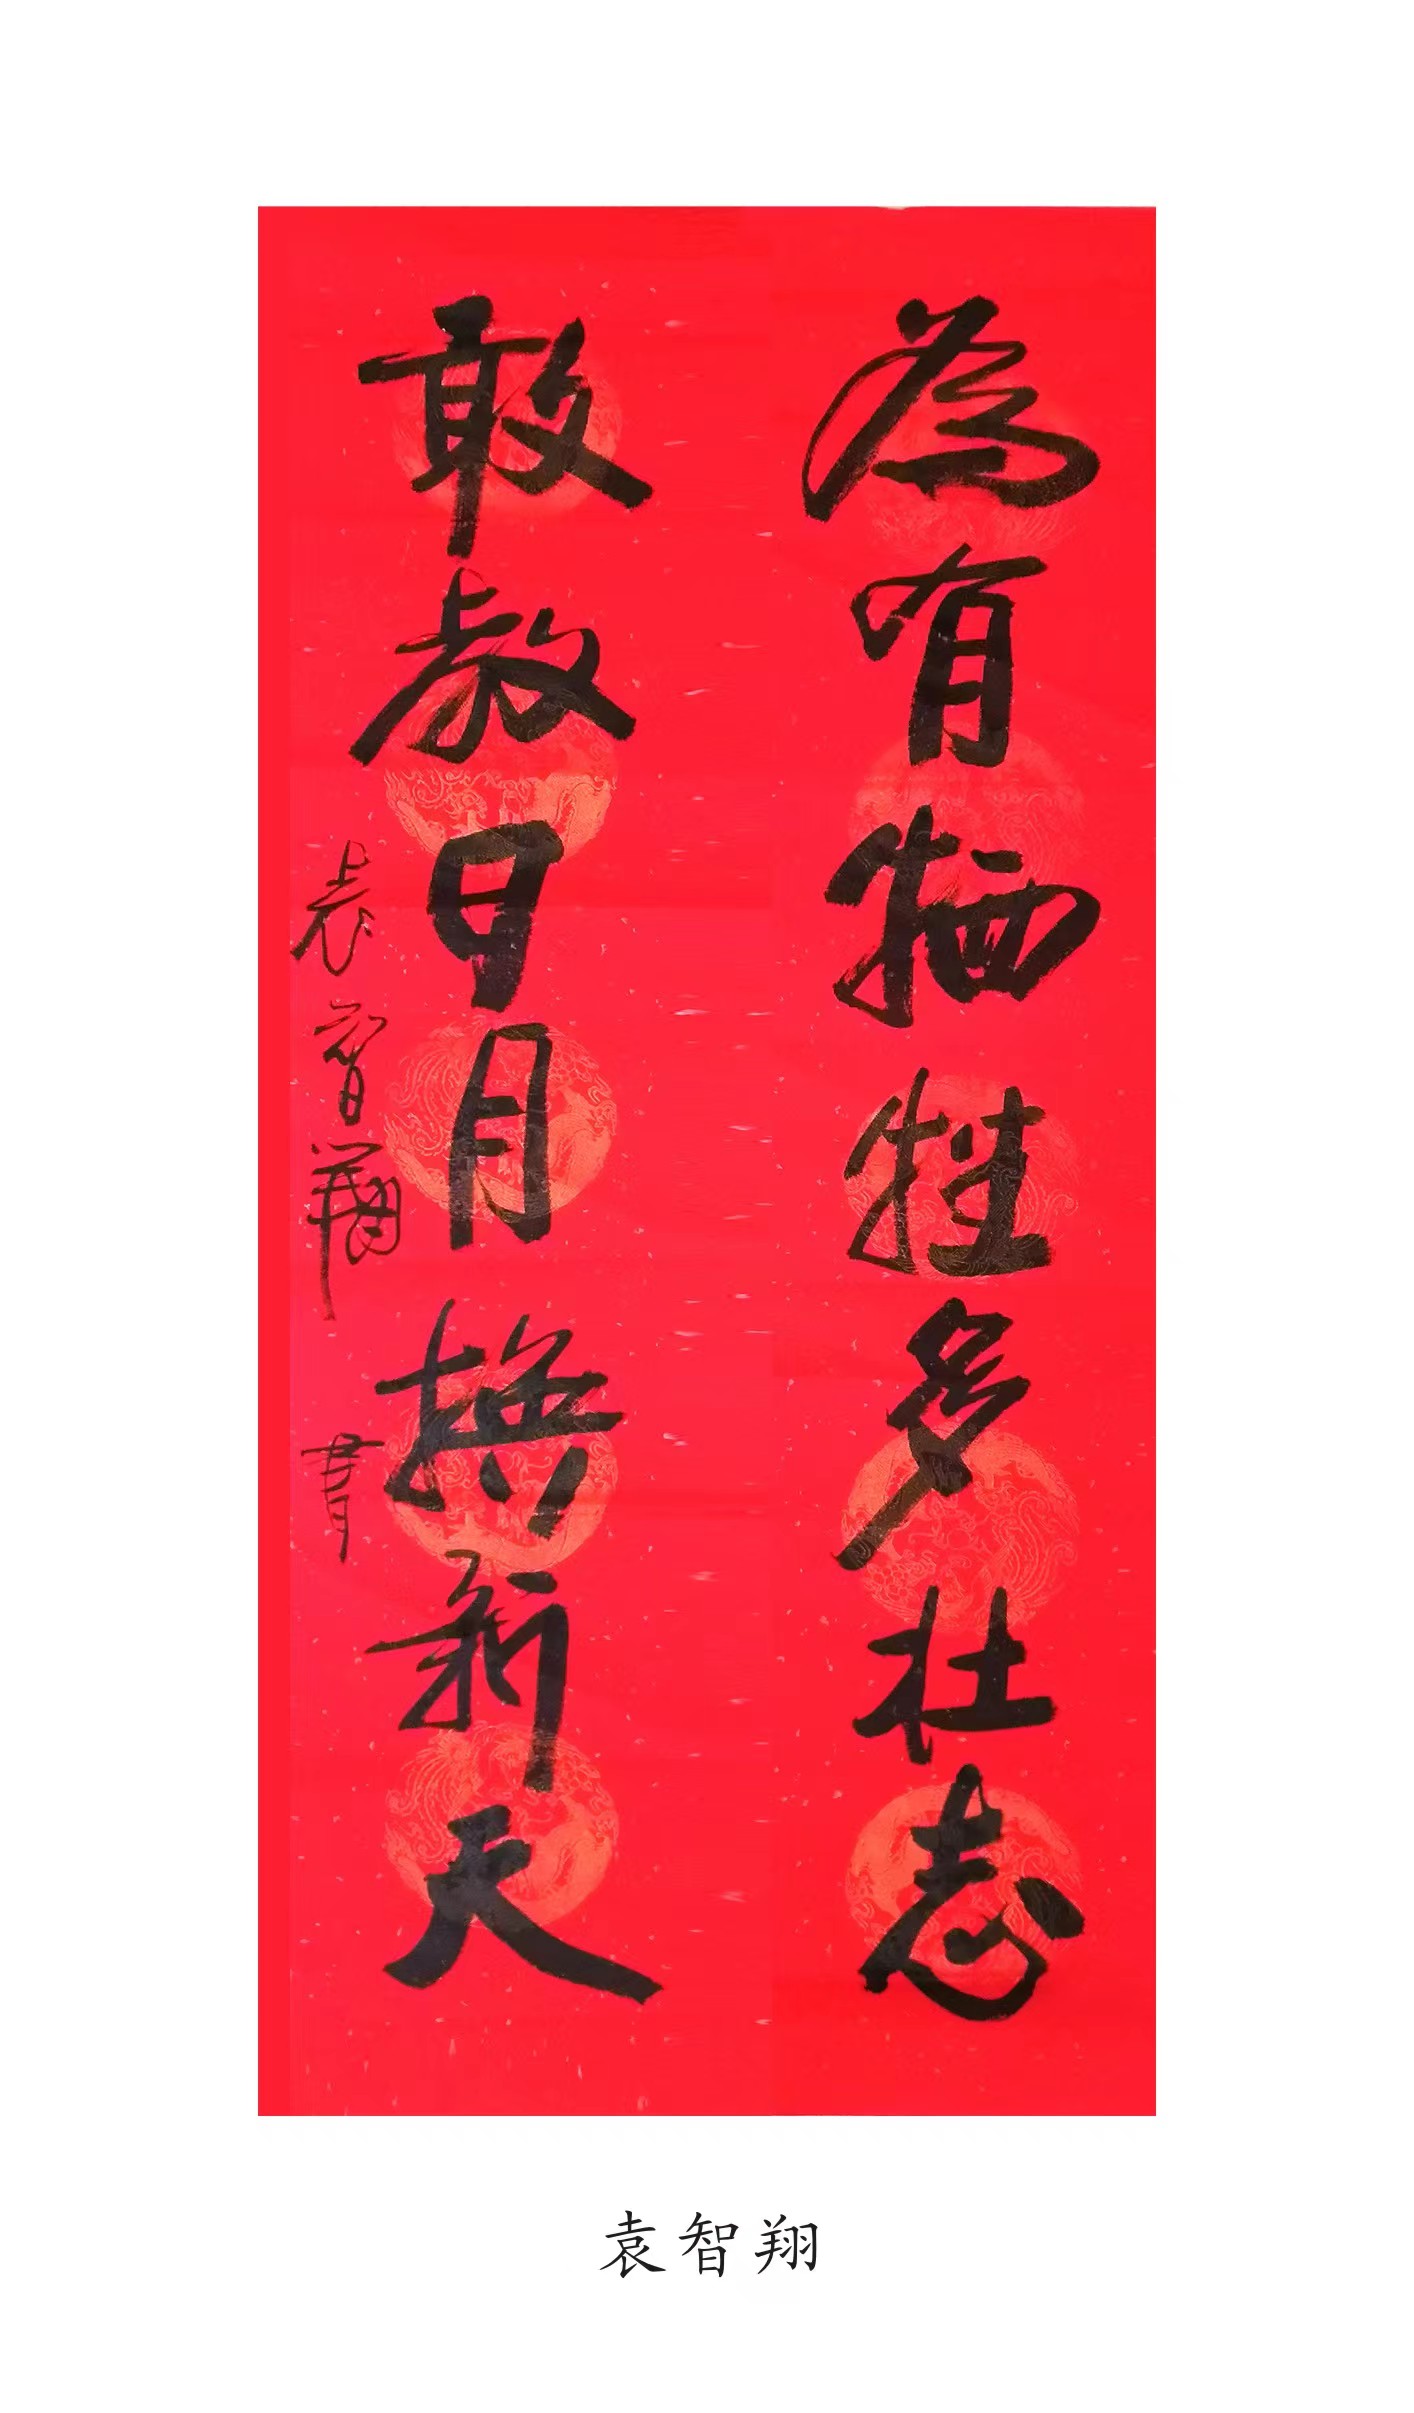 為有牺牲多壮志
敢教日月换新天
袁智翔 書
袁智翔